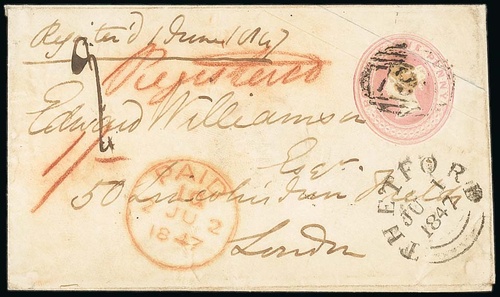 Register'd 1 June 1847
Registered
Edward Williamson
Esqr.
50 Lincoln's Inn Fields
London
1/-
PENNY
PAID
JU 2
1847
THETFORD
JU 1
1847